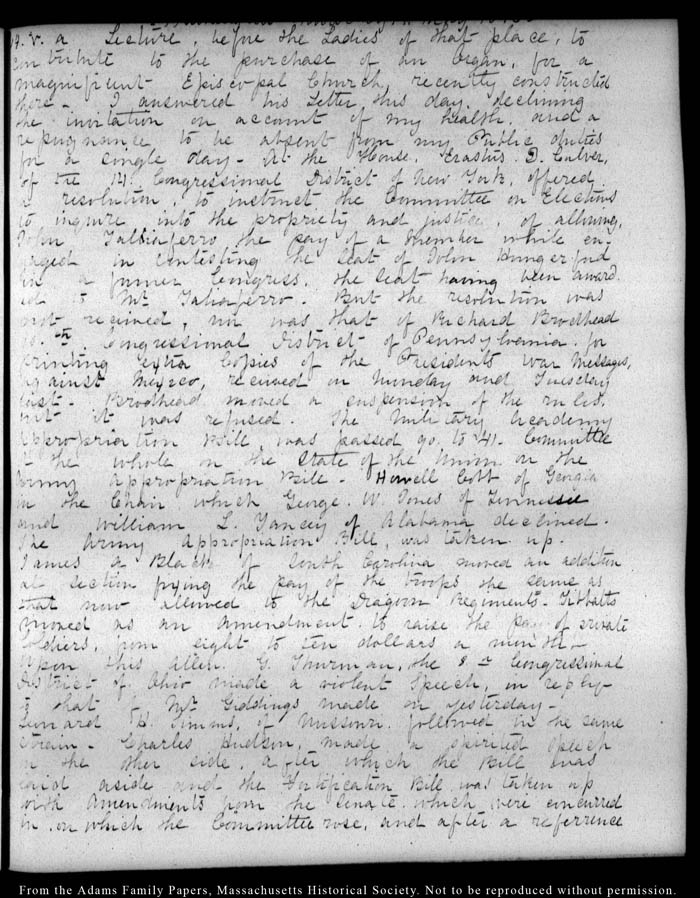 a Lecture, before the Ladies of that place, to
contribute to the purchase of an Organ, for a
magnificent Episcopal Church, recently constructed
there - I answered his Letter, this day, declining
the invitation on account of my health, and a
repugnance to be absent from my Public duties
for a single day - At the House, Erastus D. Culver,
of the 14. Congressional District of New York, offered
a resolution, to instruct the Committee on Elections
to inquire into the propriety and justice, of allowing,
John Taliaferro the pay of a member while en-
gaged in contesting the seat of John Hungerford
in a former Congress, the seat having been award
ed to Mr Taliaferro. But the resolution was
not received, nor was that of Richard Brodhead
Congressional District of Pennsylvania for
printing extra Copies of the Presidents War Messages,
against Mexico, received on Monday and Tuesday
last - Brodhead moved a suspension of the rules,
but it was refused. The Military Academy
appropriation Bill, was passed 90. to 41. Committee
of the whole on the State of the Union on the
Army appropriation Bill - Howell Cobb of Georgia
in the Chair which George. W. Jones of Tennessee
and William L. Yancey of Alabama declined.
The Army Appropriation Bill, was taken up.
James A Black of South Carolina moved an addition
al section fixing the pay of the troops the same as
that now allowed to the Dragoon Regiments - Tibbatts
moved as an amendment to raise the pay of private
soldiers, from eight to ten dollars a month -
Upon this Allen. G. Thurman, the Congressional
District of Ohio made a violent Speech, in reply
to that of Mr Giddings made on yesterday -
Leonard H. Simms, of Missouri followed in the same
strain - Charles Hudson, made a spirited speech
on the other side, after which the Bill was
laid aside and the Fortification Bill was taken up
with Amendments from the Senate which were concurred
in, on which the Committee rose, and after a reference
From the Adams Family Papers, Massachusetts Historical Society. Not to be reproduced without permission.